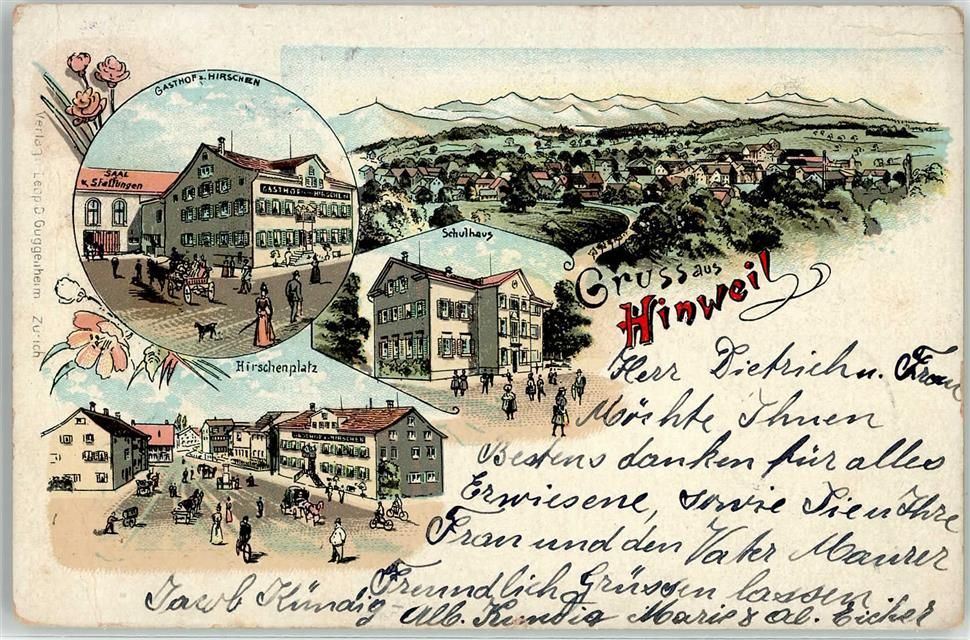 GASTHOF z. HIRSCHEN
SAAL
u. Stallungen
GASTHOF ZUM HIRSCHEN
Verlag: Leop. Guggenheim Zürich
Schulhaus
Gruss aus
Hinweil
Hirschenplatz
GASTHOF z. HIRSCHEN
Herr Dietrich u. Frau
Möchte Ihnen
Bestens danken für alles
Erwiesene, sowie Sie u Ihre
Frau und den Vater Maurer
Freundlich Grüssen lassen
Jacob Kündig - Alb. Kundig Marie & Al. Eicher